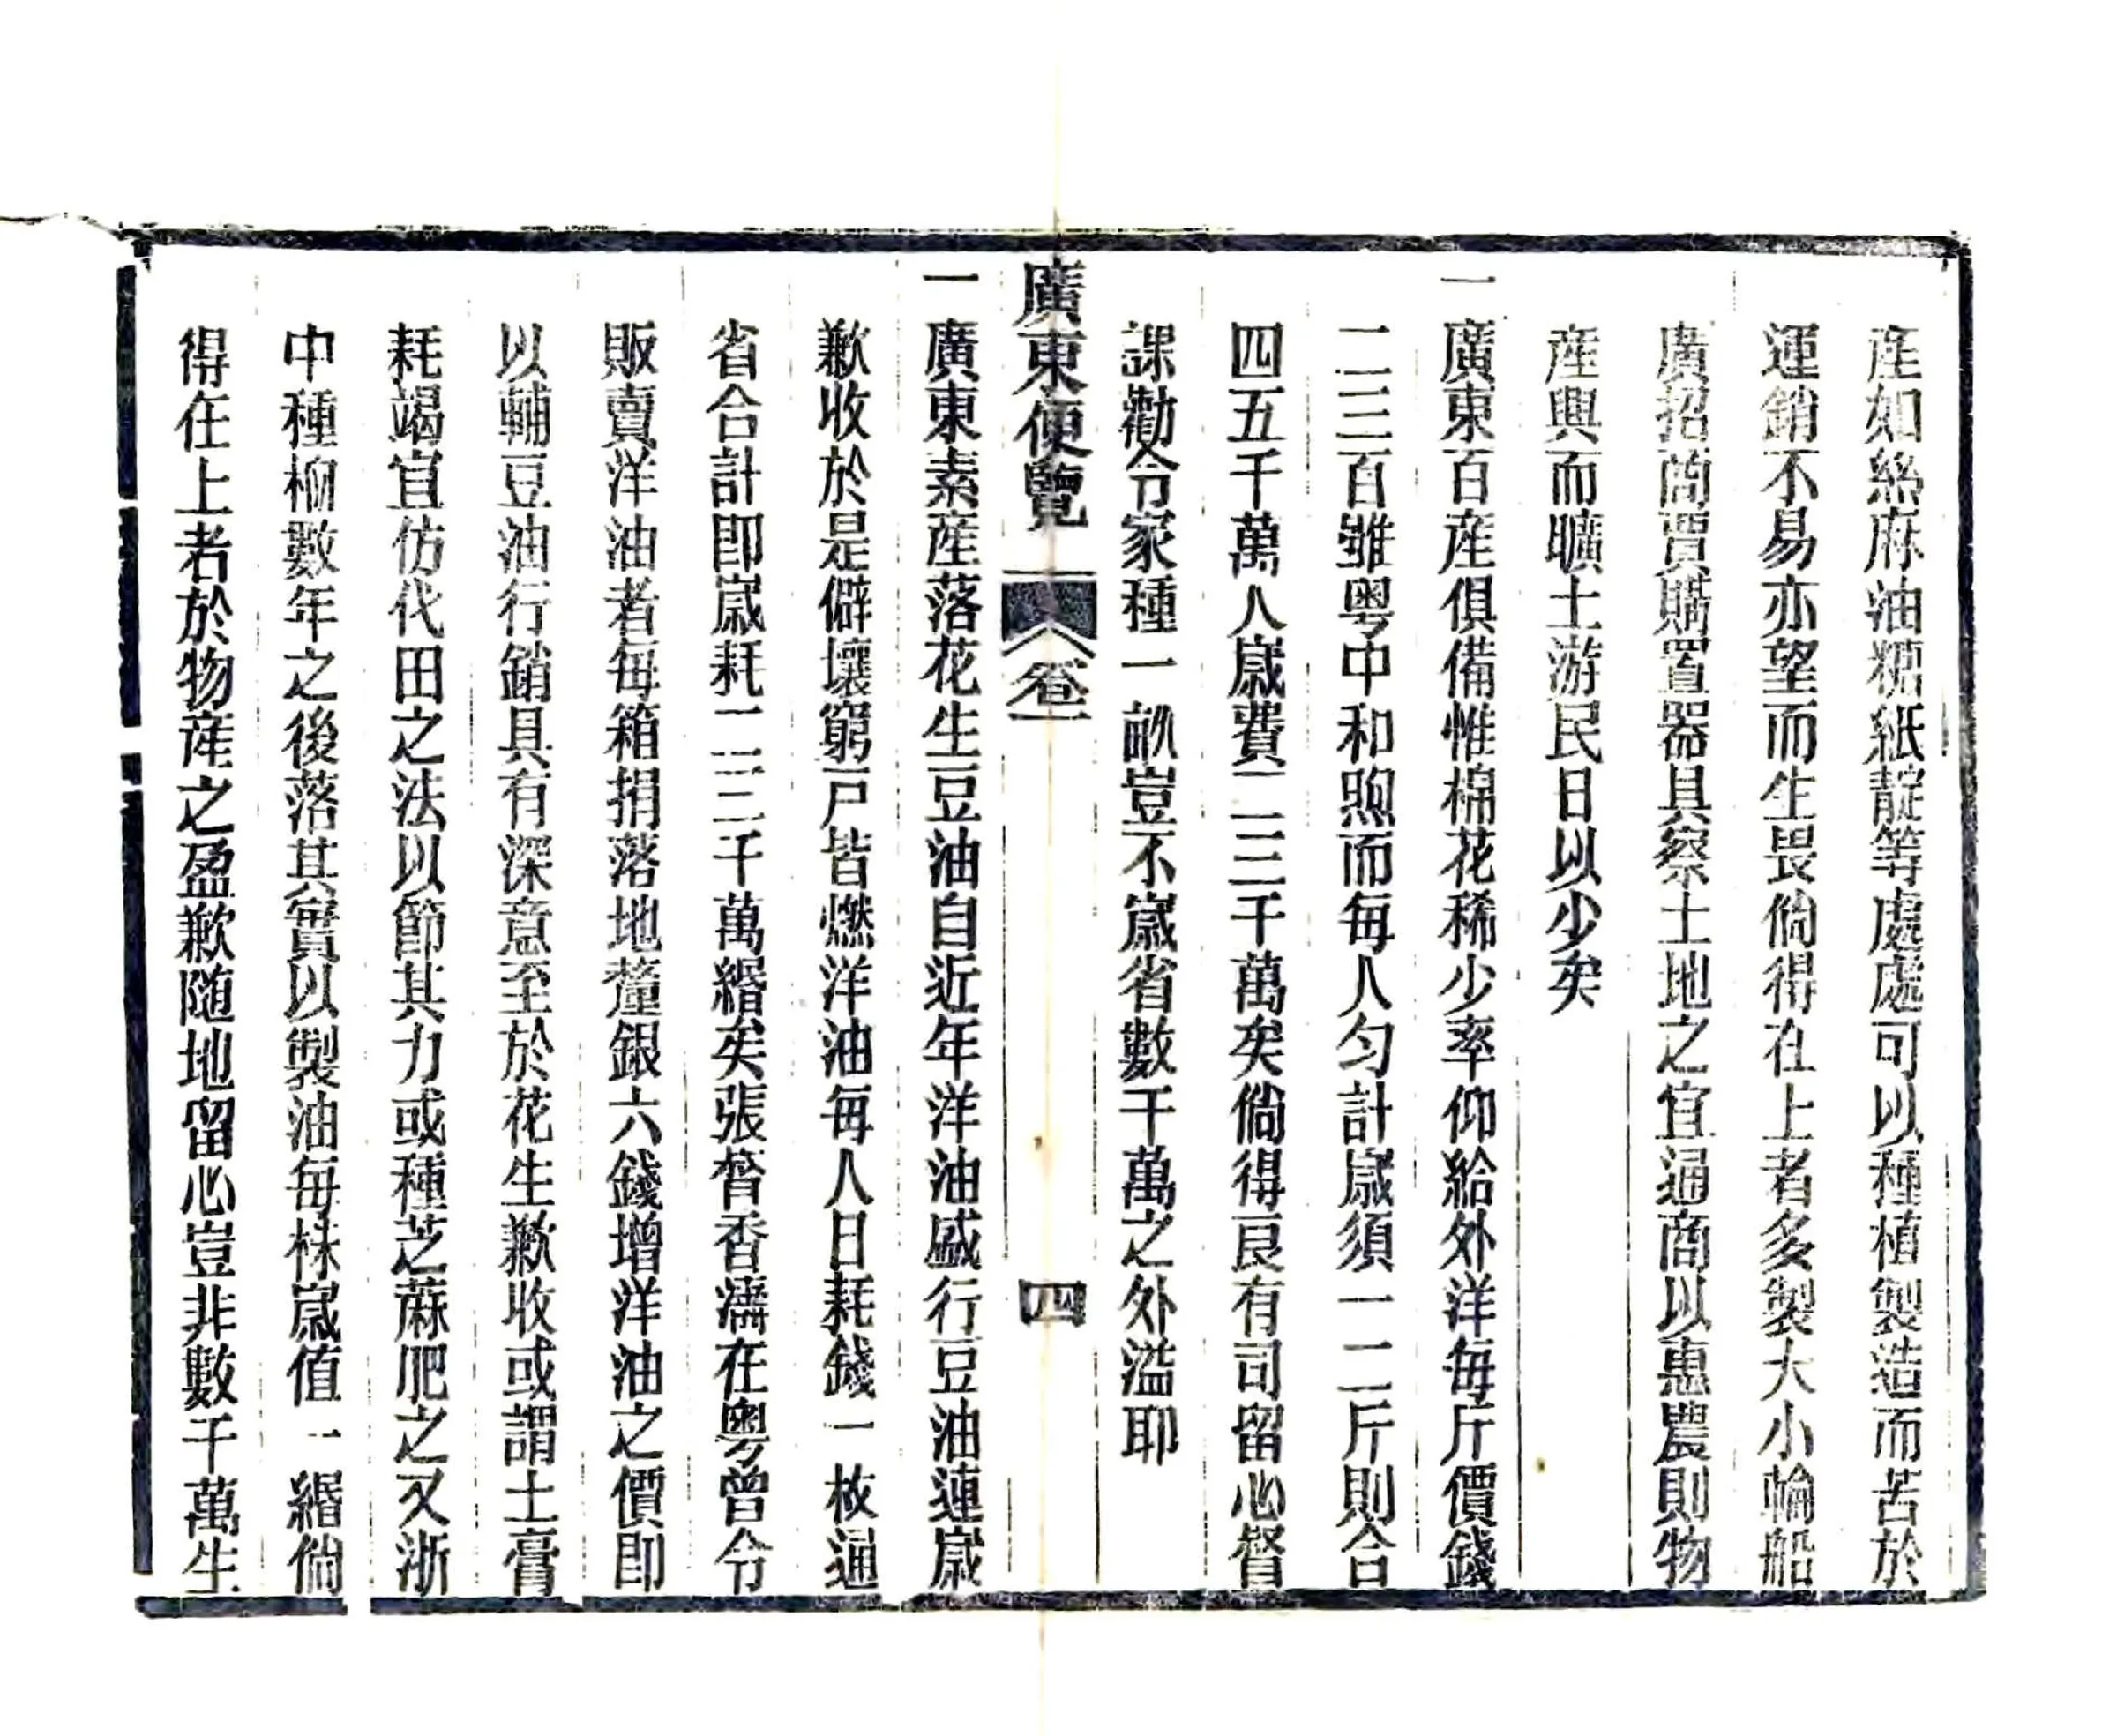 產如絲麻油糖紙靛等處處可以種植製造而苦於
運銷不易亦望而生畏倘得在上者多製大小輪船
廣招商賈購置器具察土地之宜通商以惠農則物
產興而曠土游民日以少矣
一廣東百產俱備惟棉花稀少率仰給外洋每斤價錢
二三百雖粵中和煦而每人勻計歲須一二斤則合
四五千萬人歲費二三千萬矣倘得良有司留心督
課勸令家種一畝豈不歲省數千萬之外溢耶
廣東便覽 卷一 四
一廣東素產落花生豆油自近年洋油盛行豆油連歲
歉收於是僻壤窮戶皆燃洋油每人日耗錢一枚通
省合計卽歲耗二三千萬緡矣張督香濤在粵曾令
販賣洋油者每箱捐落地釐銀六錢增洋油之價卽
以輔豆油行銷具有深意至於花生歉收或謂土膏
耗竭宜仿代田之法以節其力或種芝蔴肥之又浙
中種桕數年之後落其實以製油每株歲值一緡倘
得在上者於物產之盈歉隨地留心豈非數千萬生